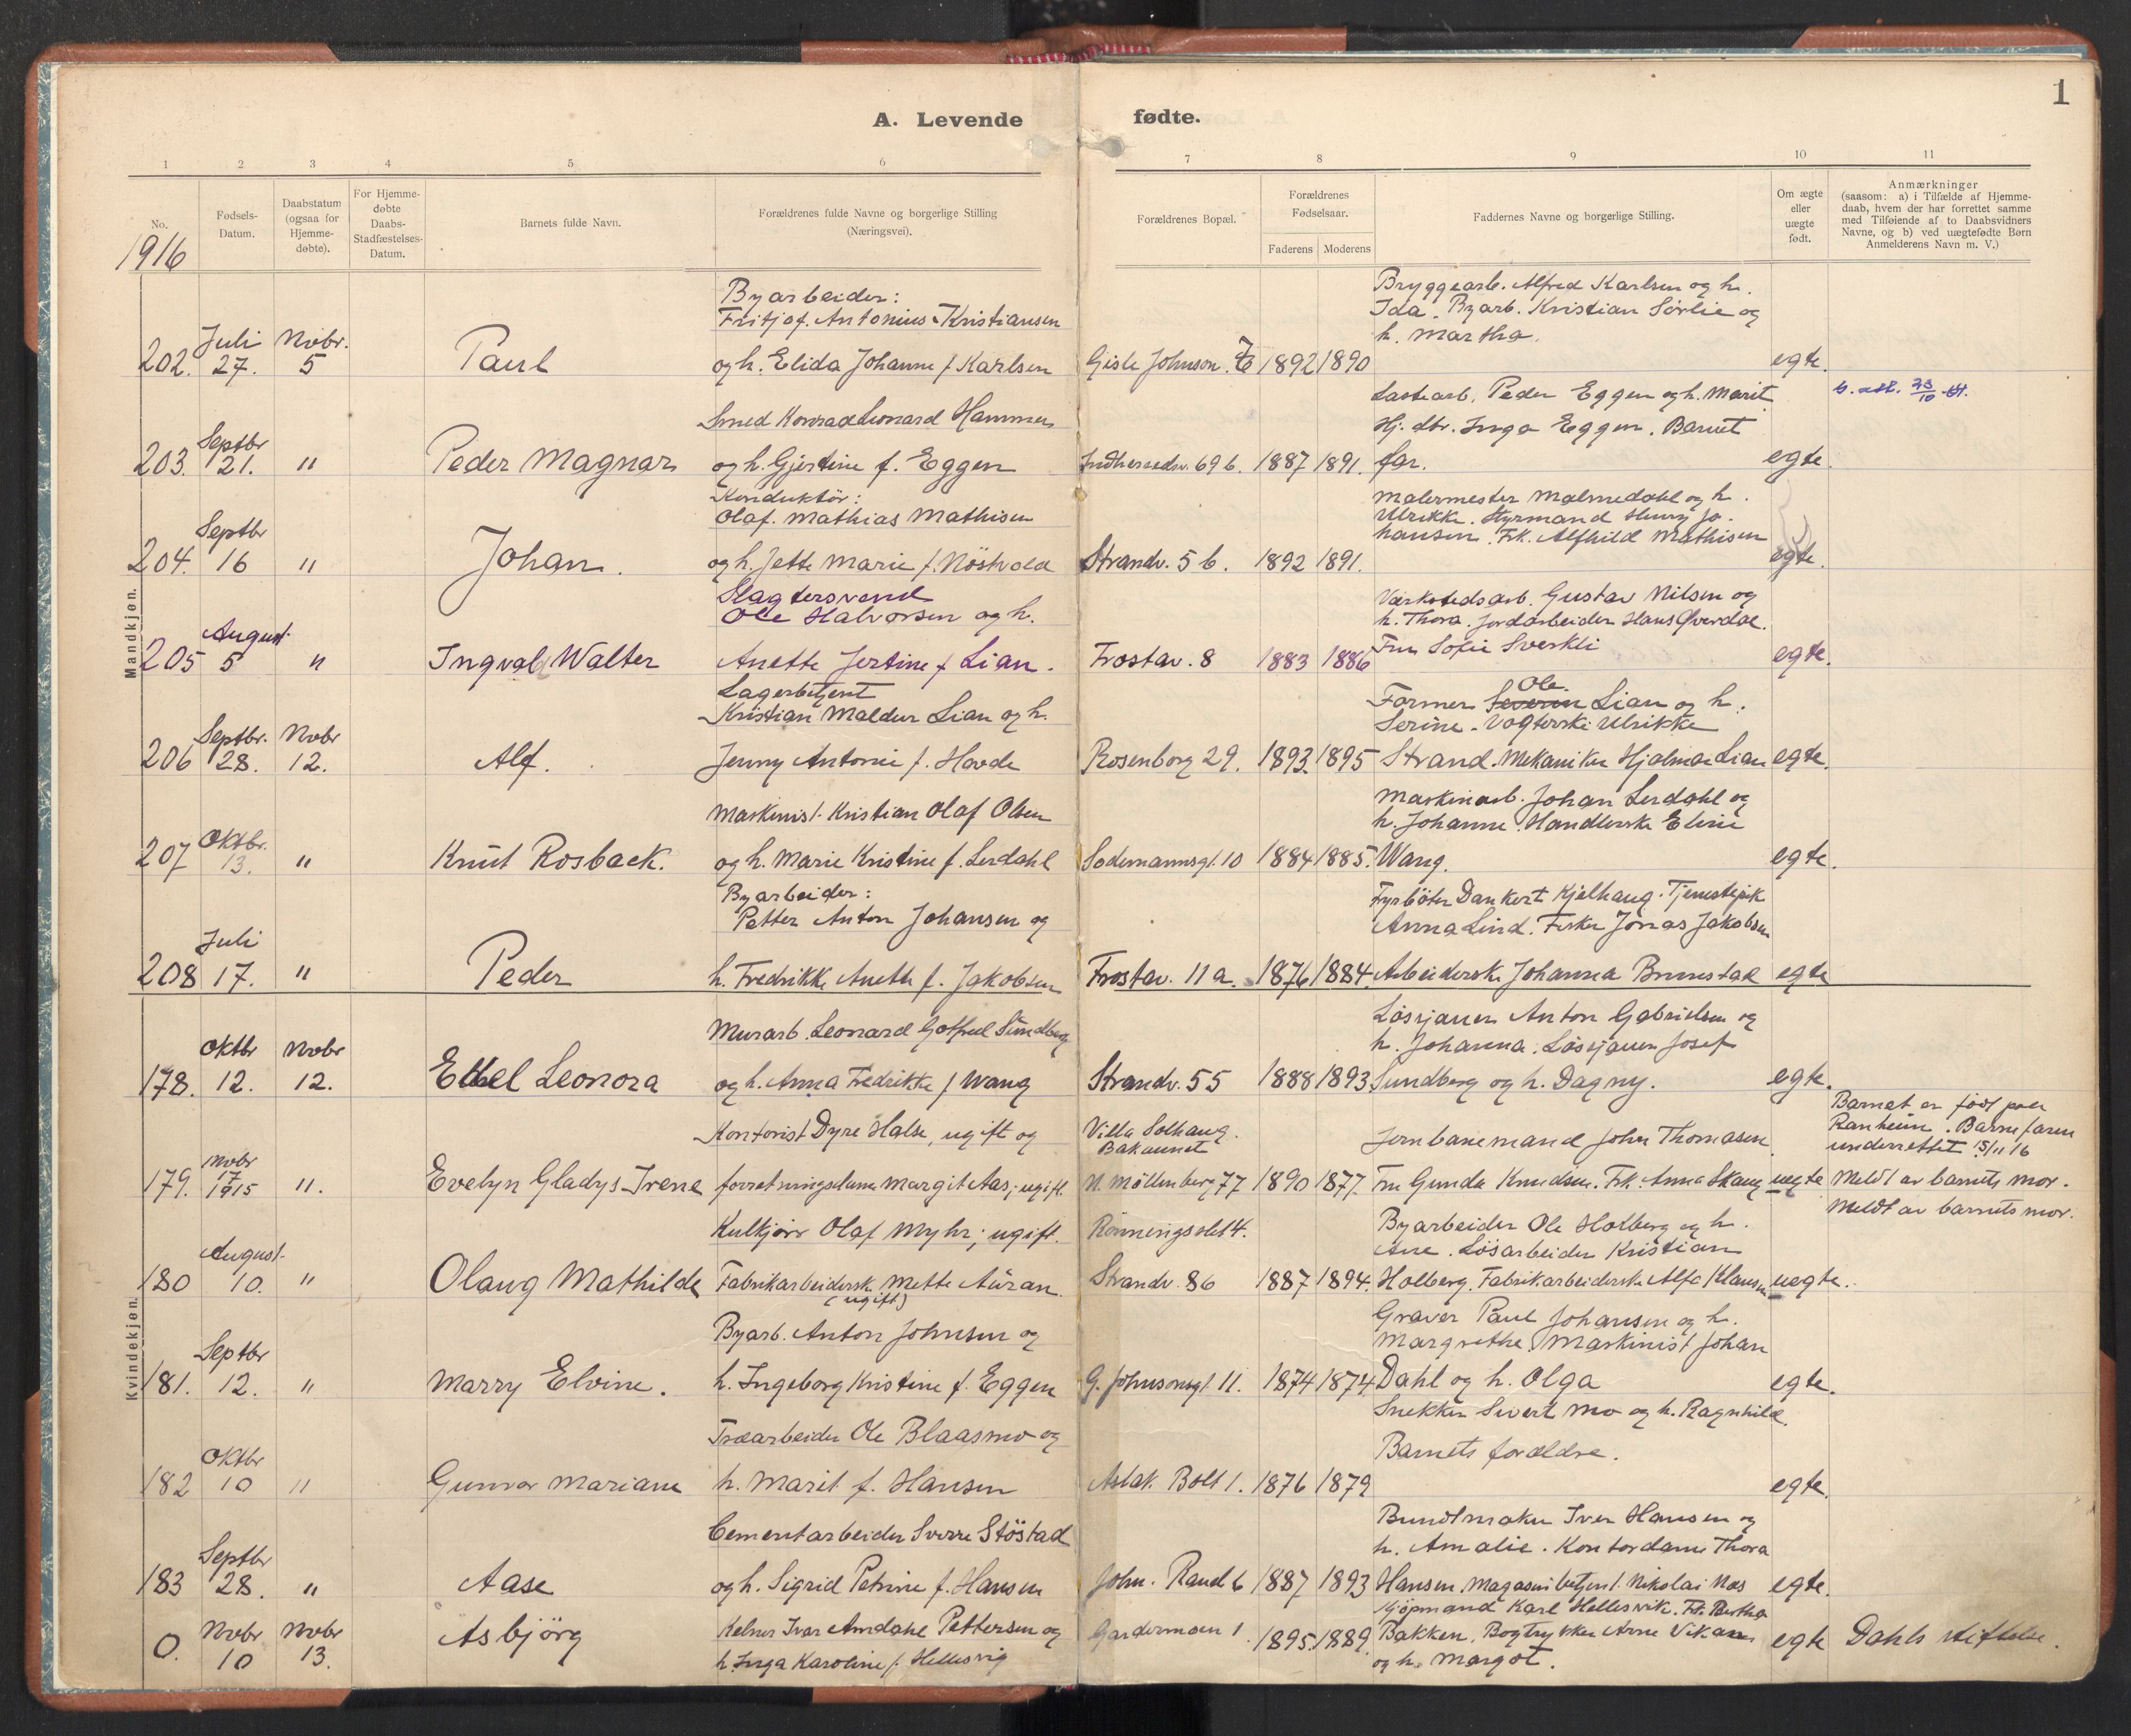 1
A. Levende fødte.
1 2 3 4 5 6 7 8 9 10 11
No.
Fødsels-
Datum.
Daabstatum
(ogsaa for
Hjemme-
døbte).
For Hjemme-
døbte
Daabs-
Stadfæstelses-
Datum.
Barnets fulde Navn.
Forældrenes fulde Navne og borgerlige Stilling
(Næringsvei).
Forældrenes Bopæl.
Forældrenes
Fødselsaar.
Faderens Moderens
Faddernes Navne og borgerlige Stilling.
Om ægte
eller
uægte
født.
Anmærkninger
(saasom: a) i Tilfælde af Hjemme-
daab, hvem der har forrettet samme
med Tilføiende af to Daabsvidners
Navne, og b) ved uægtefødte Børn
Anmelderens Navn m. V.)
1916
Mandkjøn.
202. Juli 27. Nobr. 5
Paul
Byarbeider:
Fritjof. Antonius Kristiansen
og h. Elida Johanne f. Karlsen
Gisle Johnson. 1892 1890
Bryggearb. Alfred Karlsen og h.
Ida. Byarb. Kristian Sörlie og
h. Martha.
egte.
203. Septbr 21. "
Peder Magnar
Smed Konrad Leonard Hammer
og h. Gjertine f. Eggen
Indherredsv. 69 b. 1887 1891.
Lastearb. Peder Eggen og h. Marit
Hj. dtr. Inga Eggen. Barnet
far.
egte.
204. Septbr 16 "
Johan.
Konduktör:
Olaf. Mathias Mathisen
og h. Jette Marie f. Nöstvold
Strandv. 5 b. 1892 1891.
Malermester Malmedahl og h.
Ulrikke. Styrmand Henry Jo-
hansen. Frk. Alfhild Mathisen
egte.
205 August 5 "
Ingvald Walter
Slagtersvend
Ole Halvorsen og h.
Anette Jertine f. Lian.
Frostav. 8 1883 1886
Værkstedsarb. Gustav Nilsen og
h. Thora. Jordarbeider Hans Overdal.
Fru Sofie Sverkli
egte.
206 Septbr. 28. Nobr 12.
Alf.
Lagerbetjent
Kristian Maldur Lian og h.
Jenny Antonie f. Hovde
Rosenborg 29. 1893. 1895
Ole.
Former Severin Lian og h.
Serine. Vogterske Ulrikke
Strand. Mekaniker Hjalmar Lian
egte.
207 Oktbr. 13. "
Knut Rosbaek.
Maskinist. Kristian Olaf Olsen
og h. Marie Kristine f. Lerdahl
Sodemannsgt. 10 1884 1885.
Maskinarb. Johan Lerdahl og
h. Johanne. Handlerske Eline
Wang.
egte.
208 Juli 17. "
Peder
Byarbeider:
Petter Anton Johansen og
h. Fredrikke Anette f. Jakobsen
Frostav. 11 a. 1876 1884.
Fyrböter Dankert Kjelhaug. Tjenestepik
Anna Lind. Fisker Jonas Jakobsen
Arbeiderske Johanna Brunestad
egte
Kvindekjøn.
178. Oktbr 12. Nobr 12.
Ethel Leonora
Murarb. Leonard Gotfred Sundberg
og h. Anna Fredrikke f. Wang
Strandv. 55 1888 1893.
Lössjauer Anton Gabrielsen og
h. Johanna. Lössjauer Josef
Sundberg og h. Dagny.
egte.
179. Nobr 17 1915 ".
Evelyn Gladys Irene
Kontorist Dyre Halse, ugift og
forretningsdame Margit Aas; ugift.
Villa Solhaug.
Bakaunet
N. Möllenberg 77 1890 1877.
Jernbanemand John Thomasen.
Fru Gunda Knudsen. Frk. Anna Skaug
uegte
Barnet er født paa
Ranheim. Barnefaren
underrettet 15/11 16
Meldt av barnets mor.
180 August 10. "
Olaug Mathilde
Kulkjörer Olaf Myhr; ugift.
Fabrikarbeidersk. Mette Auran.
(ugift)
Rönningsslet 4.
Strandv. 86 1887 1894.
Byarbeider Ole Holberg og h.
Ane. Lösarbeider Kristian
Holberg. Fabrikarbeiderske Alfa Klausen
uegte.
Meldt av barnets mor.
181. Septbr 12. "
Marry Elvine.
Byarb. Anton Johnsen og
h. Ingeborg Kristine f. Eggen
G. Johnsonsgt. 11. 1874 1874
Graver Paul Johansen og h.
Margrethe. Maskinist Johan
Dahl og h. Olga
egte.
182 Oktbr 10 "
Gunvor Mariane
Træarbeider Ole Blaasmo og
h. Marit f. Hansen
Aslak. Bolt 1. 1876 1879
Snekker Sivert Mo og h. Ragnhild.
Barnets forældre.
egte.
183 Septbr 28. "
Aase
Cementarbeider Sverre Stöstad
og h. Sigrid Petrine f. Hansen
John. Rand 6 1887 1893
Bundtmaker Iver Hansen og
h. Amalie. Kontordame Thora
Hansen. Magasinbetjent. Nikolai Næs
egte.
0. Nobr 10 Nobr 13.
Asbjörg
Kelner Ivar Amdahl Pettersen og
h. Inga Karoline f. Hellesvig
Gardermoen 1 1895. 1889.
Kjöpmand Karl Hellesvik. Fr. Bertha
Bakken. Bogtrykker Arne Vikan
og h. Margot.
egte
Dahls stiftelse.